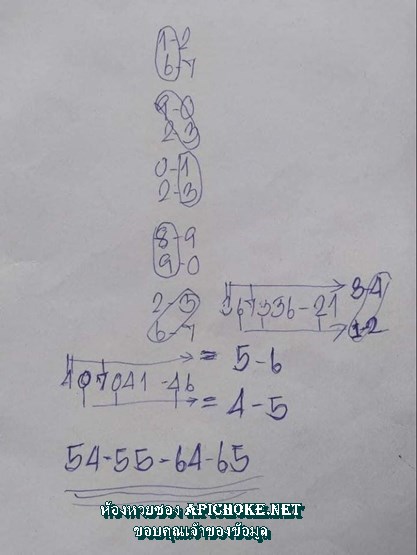 1-2
6-7
9-0
2-3
0-1
2-3
8-9
9-0
2-3
6-7
367336-21
3-4
1-2
407041-46
= 5-6
= 4-5
54-55-64-65
ห้องหวยซอง APICHOKE.NET
ขอบคุณเจ้าของข้อมูล